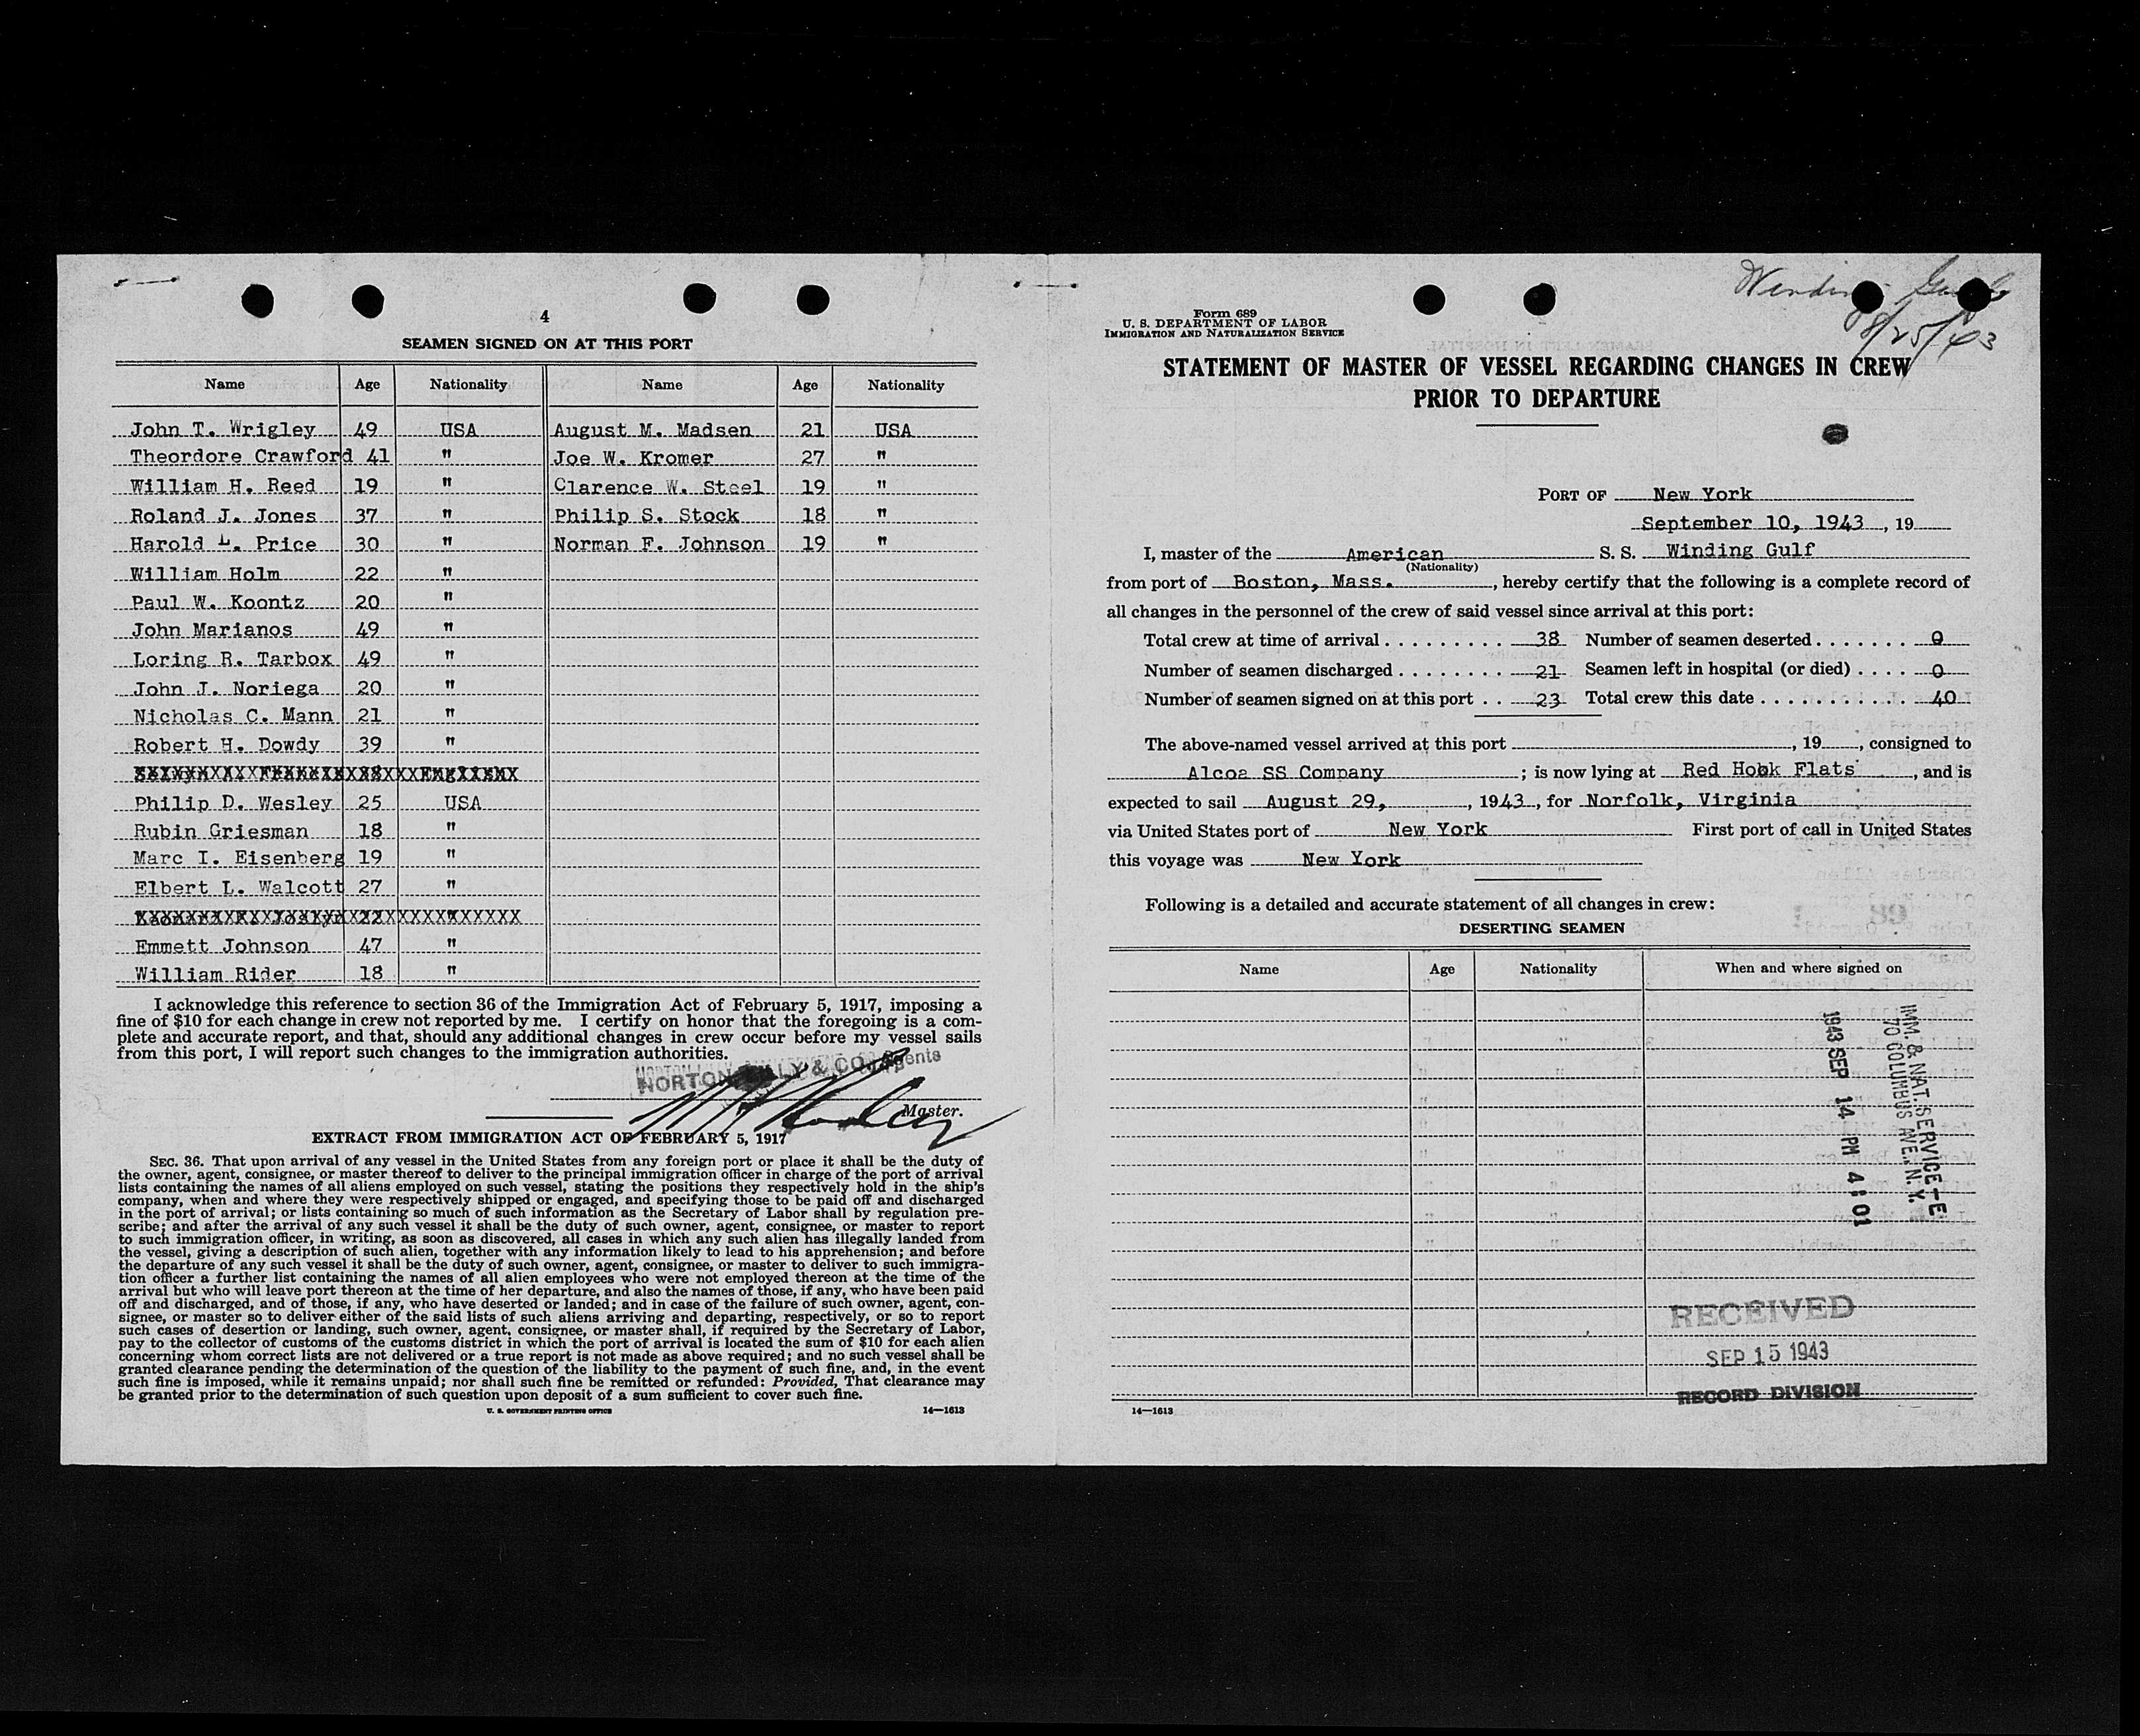 4
SEAMEN SIGNED ON AT THIS PORT
Name Age Nationality Name Age Nationality
John T. Wrigley 49 USA August M. Madsen 21 USA
Theordore Crawford 41 " Joe W. Kromer 27 "
William H. Reed 19 " Clarence W. Steel 19 "
Roland J. Jones 37 " Philip S. Stock 18 "
Harold L. Price 30 " Norman F. Johnson 19 "
William Holm 22 "
Paul W. Koontz 20 "
John Marianos 49 "
Loring R. Tarbox 49 "
John J. Noriega 20 "
Nicholas C. Mann 21 "
Robert H. Dowdy 39 "
Philip D. Wesley 25 USA
Rubin Griesman 18 "
Marc I. Eisenberg 19 "
Elbert L. Walcott 27 "
Emmett Johnson 47 "
William Rider 18 "
I acknowledge this reference to section 36 of the Immigration Act of February 5, 1917, imposing a
fine of $10 for each change in crew not reported by me. I certify on honor that the foregoing is a com-
plete and accurate report, and that, should any additional changes in crew occur before my vessel sails
from this port, I will report such changes to the immigration authorities.
NORTON LILLY & CO. Agents
Master.
EXTRACT FROM IMMIGRATION ACT OF FEBRUARY 5, 1917
SEC. 36. That upon arrival of any vessel in the United States from any foreign port or place it shall be the duty of
the owner, agent, consignee, or master thereof to deliver to the principal immigration officer in charge of the port of arrival
lists containing the names of all aliens employed on such vessel, stating the positions they respectively hold in the ship's
company, when and where they were respectively shipped or engaged, and specifying those to be paid off and discharged
in the port of arrival; or lists containing so much of such information as the Secretary of Labor shall by regulation pre-
scribe; and after the arrival of any such vessel it shall be the duty of such owner, agent, consignee, or master to report
to such immigration officer, in writing, as soon as discovered, all cases in which any such alien has illegally landed from
the vessel, giving a description of such alien, together with any information likely to lead to his apprehension; and before
the departure of any such vessel it shall be the duty of such owner, agent, consignee, or master to deliver to such immigra-
tion officer a further list containing the names of all alien employees who were not employed thereon at the time of the
arrival but who will leave port thereon at the time of her departure, and also the names of those, if any, who have been paid
off and discharged, and of those, if any, who have deserted or landed; and in case of the failure of such owner, agent, con-
signee, or master so to deliver either of the said lists of such aliens arriving and departing, respectively, or so to report
such cases of desertion or landing, such owner, agent, consignee, or master shall, if required by the Secretary of Labor,
pay to the collector of customs of the customs district in which the port of arrival is located the sum of $10 for each alien
concerning whom correct lists are not delivered or a true report is not made as above required; and no such vessel shall be
granted clearance pending the determination of the question of the liability to the payment of such fine, and, in the event
such fine is imposed, while it remains unpaid; nor shall such fine be remitted or refunded: Provided, That clearance may
be granted prior to the determination of such question upon deposit of a sum sufficient to cover such fine.
U. S. GOVERNMENT PRINTING OFFICE 14—1613
Winding Gulf
8/25/43
Form 689
U. S. DEPARTMENT OF LABOR
IMMIGRATION AND NATURALIZATION SERVICE
STATEMENT OF MASTER OF VESSEL REGARDING CHANGES IN CREW
PRIOR TO DEPARTURE
PORT OF New York
September 10, 1943, 19
I, master of the American S. S. Winding Gulf
(Nationality)
from port of Boston, Mass., hereby certify that the following is a complete record of
all changes in the personnel of the crew of said vessel since arrival at this port:
Total crew at time of arrival . . . . . . . . . . 38 Number of seamen deserted . . . . . . . . 0
Number of seamen discharged . . . . . . . . 21 Seamen left in hospital (or died) . . . . 0
Number of seamen signed on at this port . . 23 Total crew this date . . . . . . . . . . . . 40
The above-named vessel arrived at this port , 19 , consigned to
Alcoa SS Company ; is now lying at Red Hook Flats , and is
expected to sail August 29, , 1943, for Norfolk, Virginia
via United States port of New York First port of call in United States
this voyage was New York
Following is a detailed and accurate statement of all changes in crew:
DESERTING SEAMEN
Name Age Nationality When and where signed on
IMM. & NAT. SERVICE
70 COLUMBUS AVE., N. Y.
1943 SEP 14 PM 4:01
RECEIVED
SEP 15 1943
RECORD DIVISION
14—1613